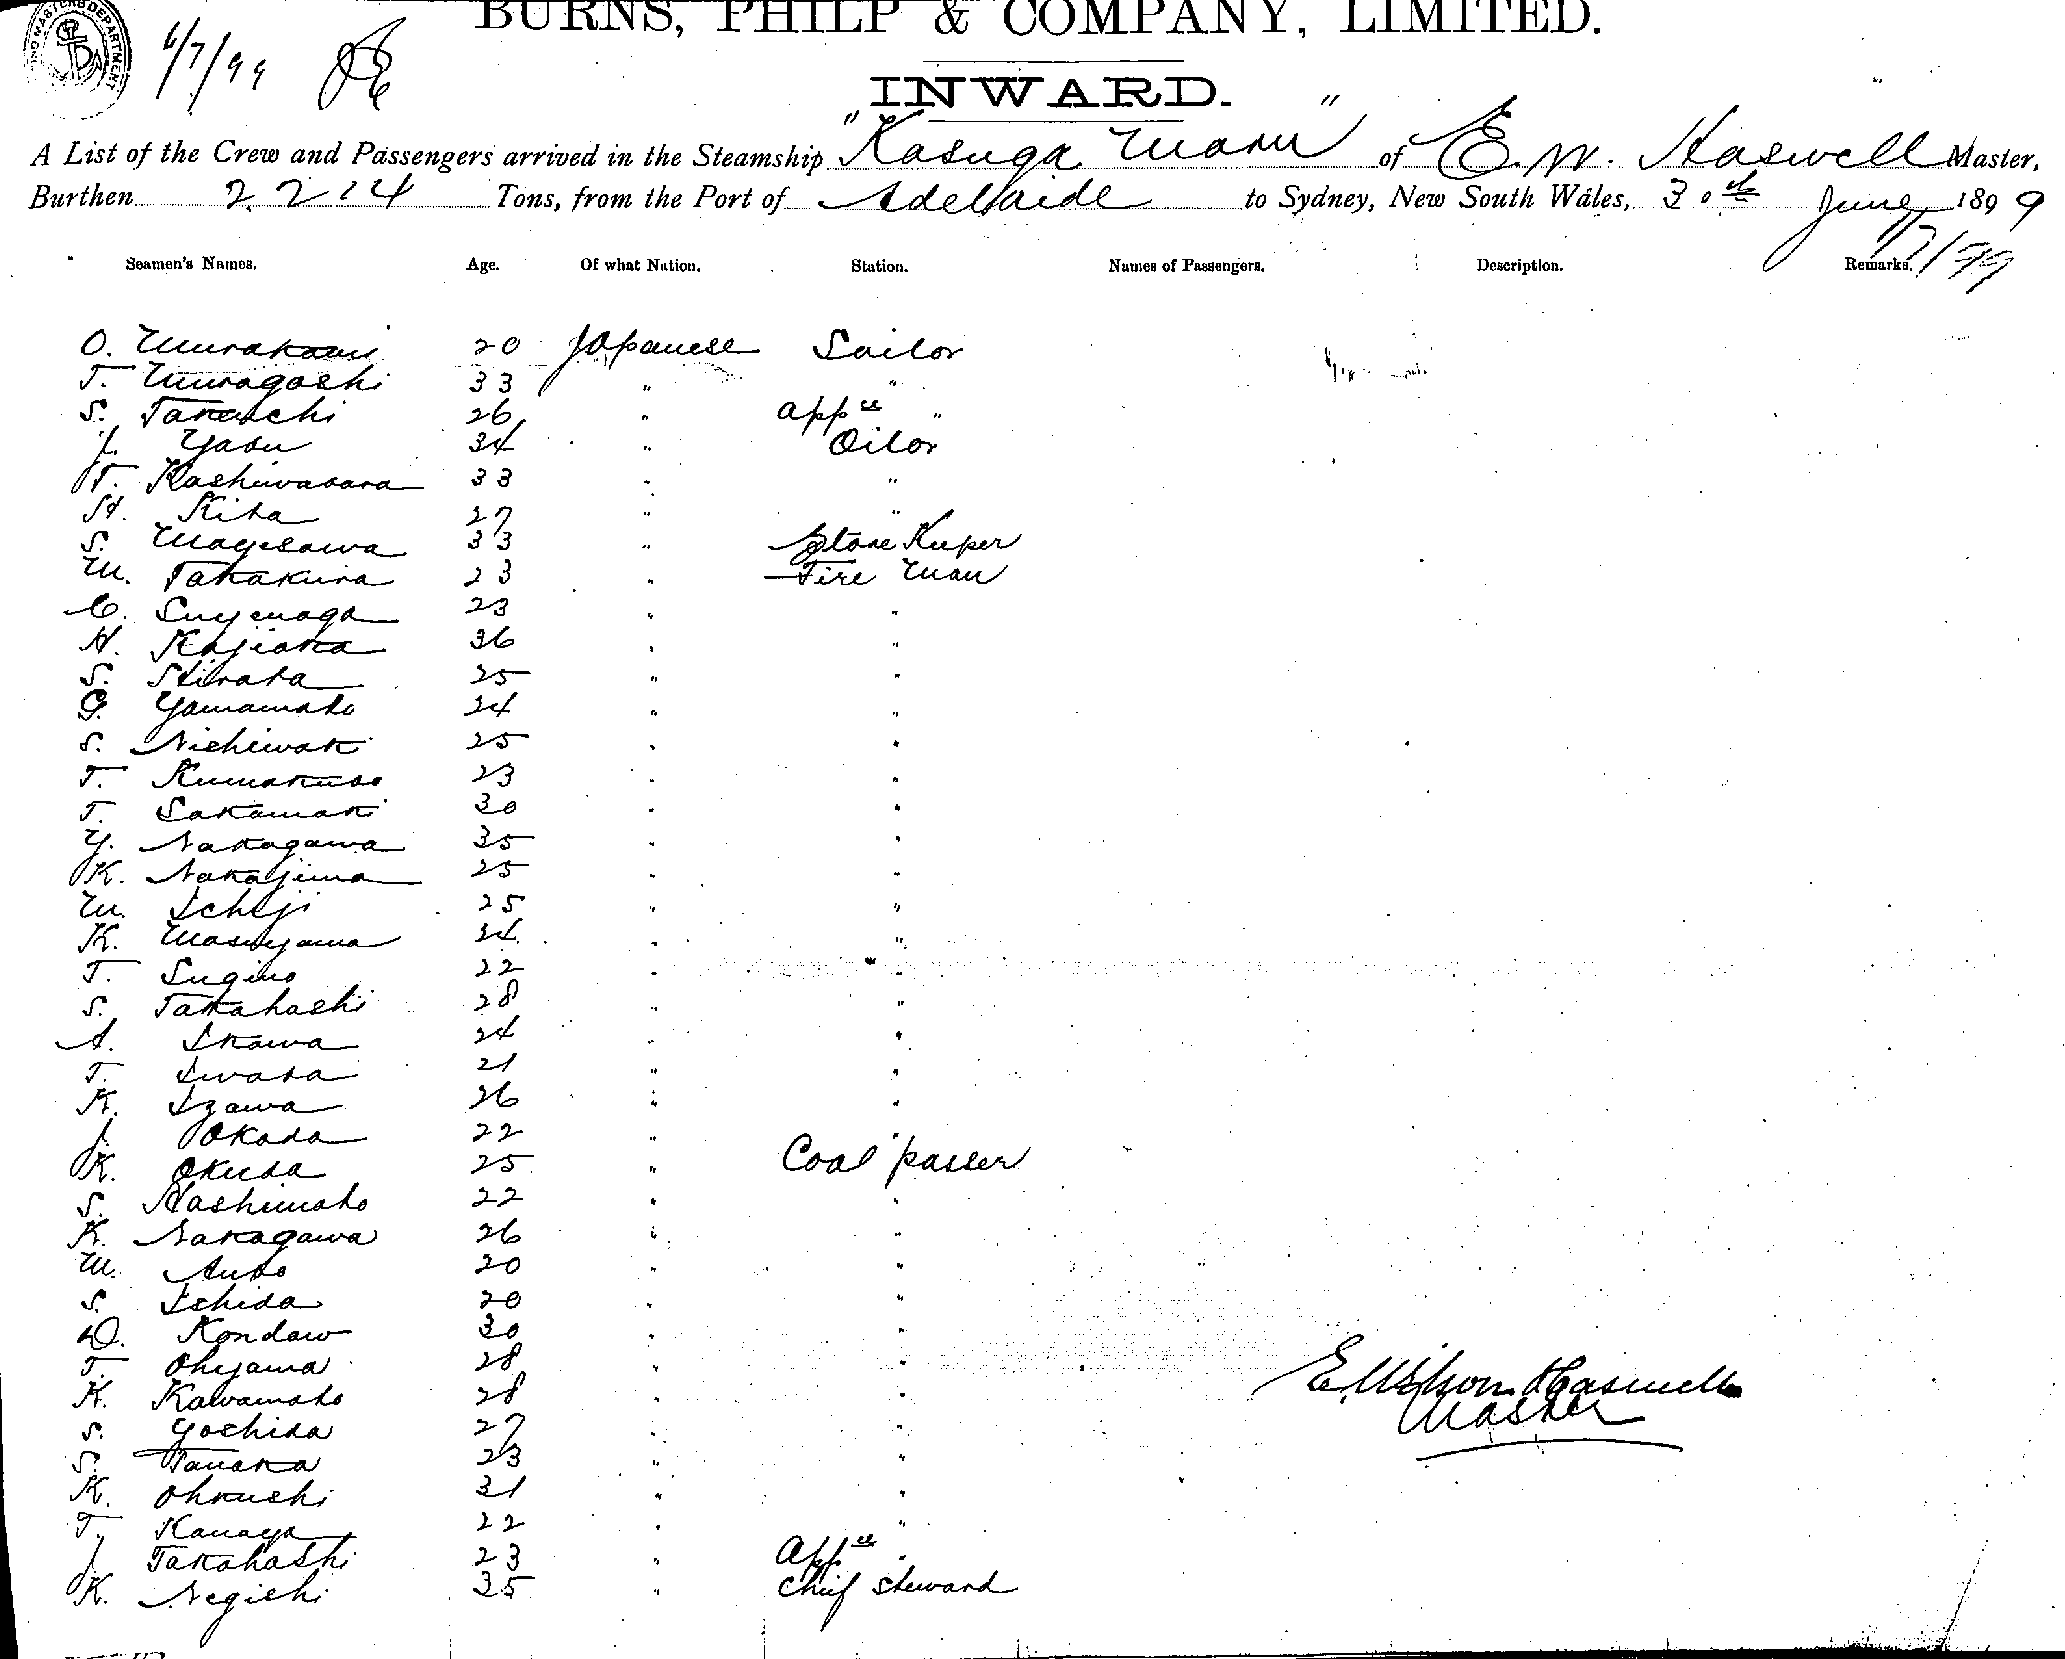 6/7/99
BURNS, PHILP & COMPANY, LIMITED.
INWARD.
A List of the Crew and Passengers arrived in the Steamship "Kasuga Maru" of E. W. Haswell Master,
Burthen 2214 Tons, from the Port of Adelaide to Sydney, New South Wales, 30th June 1899
7/99
Seamen's Names. Age. Of what Nation. Station. Names of Passengers. Description. Remarks.
O. Murakami 20 Japanese Sailor
T. Muragoshi 33 " "
S. Takeuchi 26 " appce "
Yasu 34 " Oilor
T. Kashiwabara 33 " "
H. Kita 27 " "
S. Mayesawa 33 " Store Keeper
M. Takakura 23 " Fire Man
C. Suyenaga 23 " "
H. Kajioka 36 " "
S. Hirata 25 " "
G. Yamamoto 24 " "
S. Nishiwaki 25 " "
T. Kumakubo 23 " "
T. Sakamaki 30 " "
Y. Nakagawa 35 " "
K. Nakajima 25 " "
M. Ichiji 25 " "
K. Masuyama 34 " "
T. Sugino 22 " "
S. Takahashi 28 " "
A. Ikawa 24 " "
T. Iwata 21 " "
K. Izawa 26 " "
J. Okada 22 " "
K. Okuda 25 " Coal passer
S. Hashimoto 22 " "
K. Nakagawa 26 " "
M. Ando 20 " "
S. Ishida 20 " "
D. Kondaw 30 " "
T. Ohyama 28 " "
K. Kawamoto 28 " "
S. Yoshida 27 " "
S. Tanaka 23 " "
K. Ohkushi 31 " "
T. Kanaya 22 " "
J. Takahashi 23 " appce "
K. Negishi 35 " Chief Steward
E. Wilson Haswell
Master